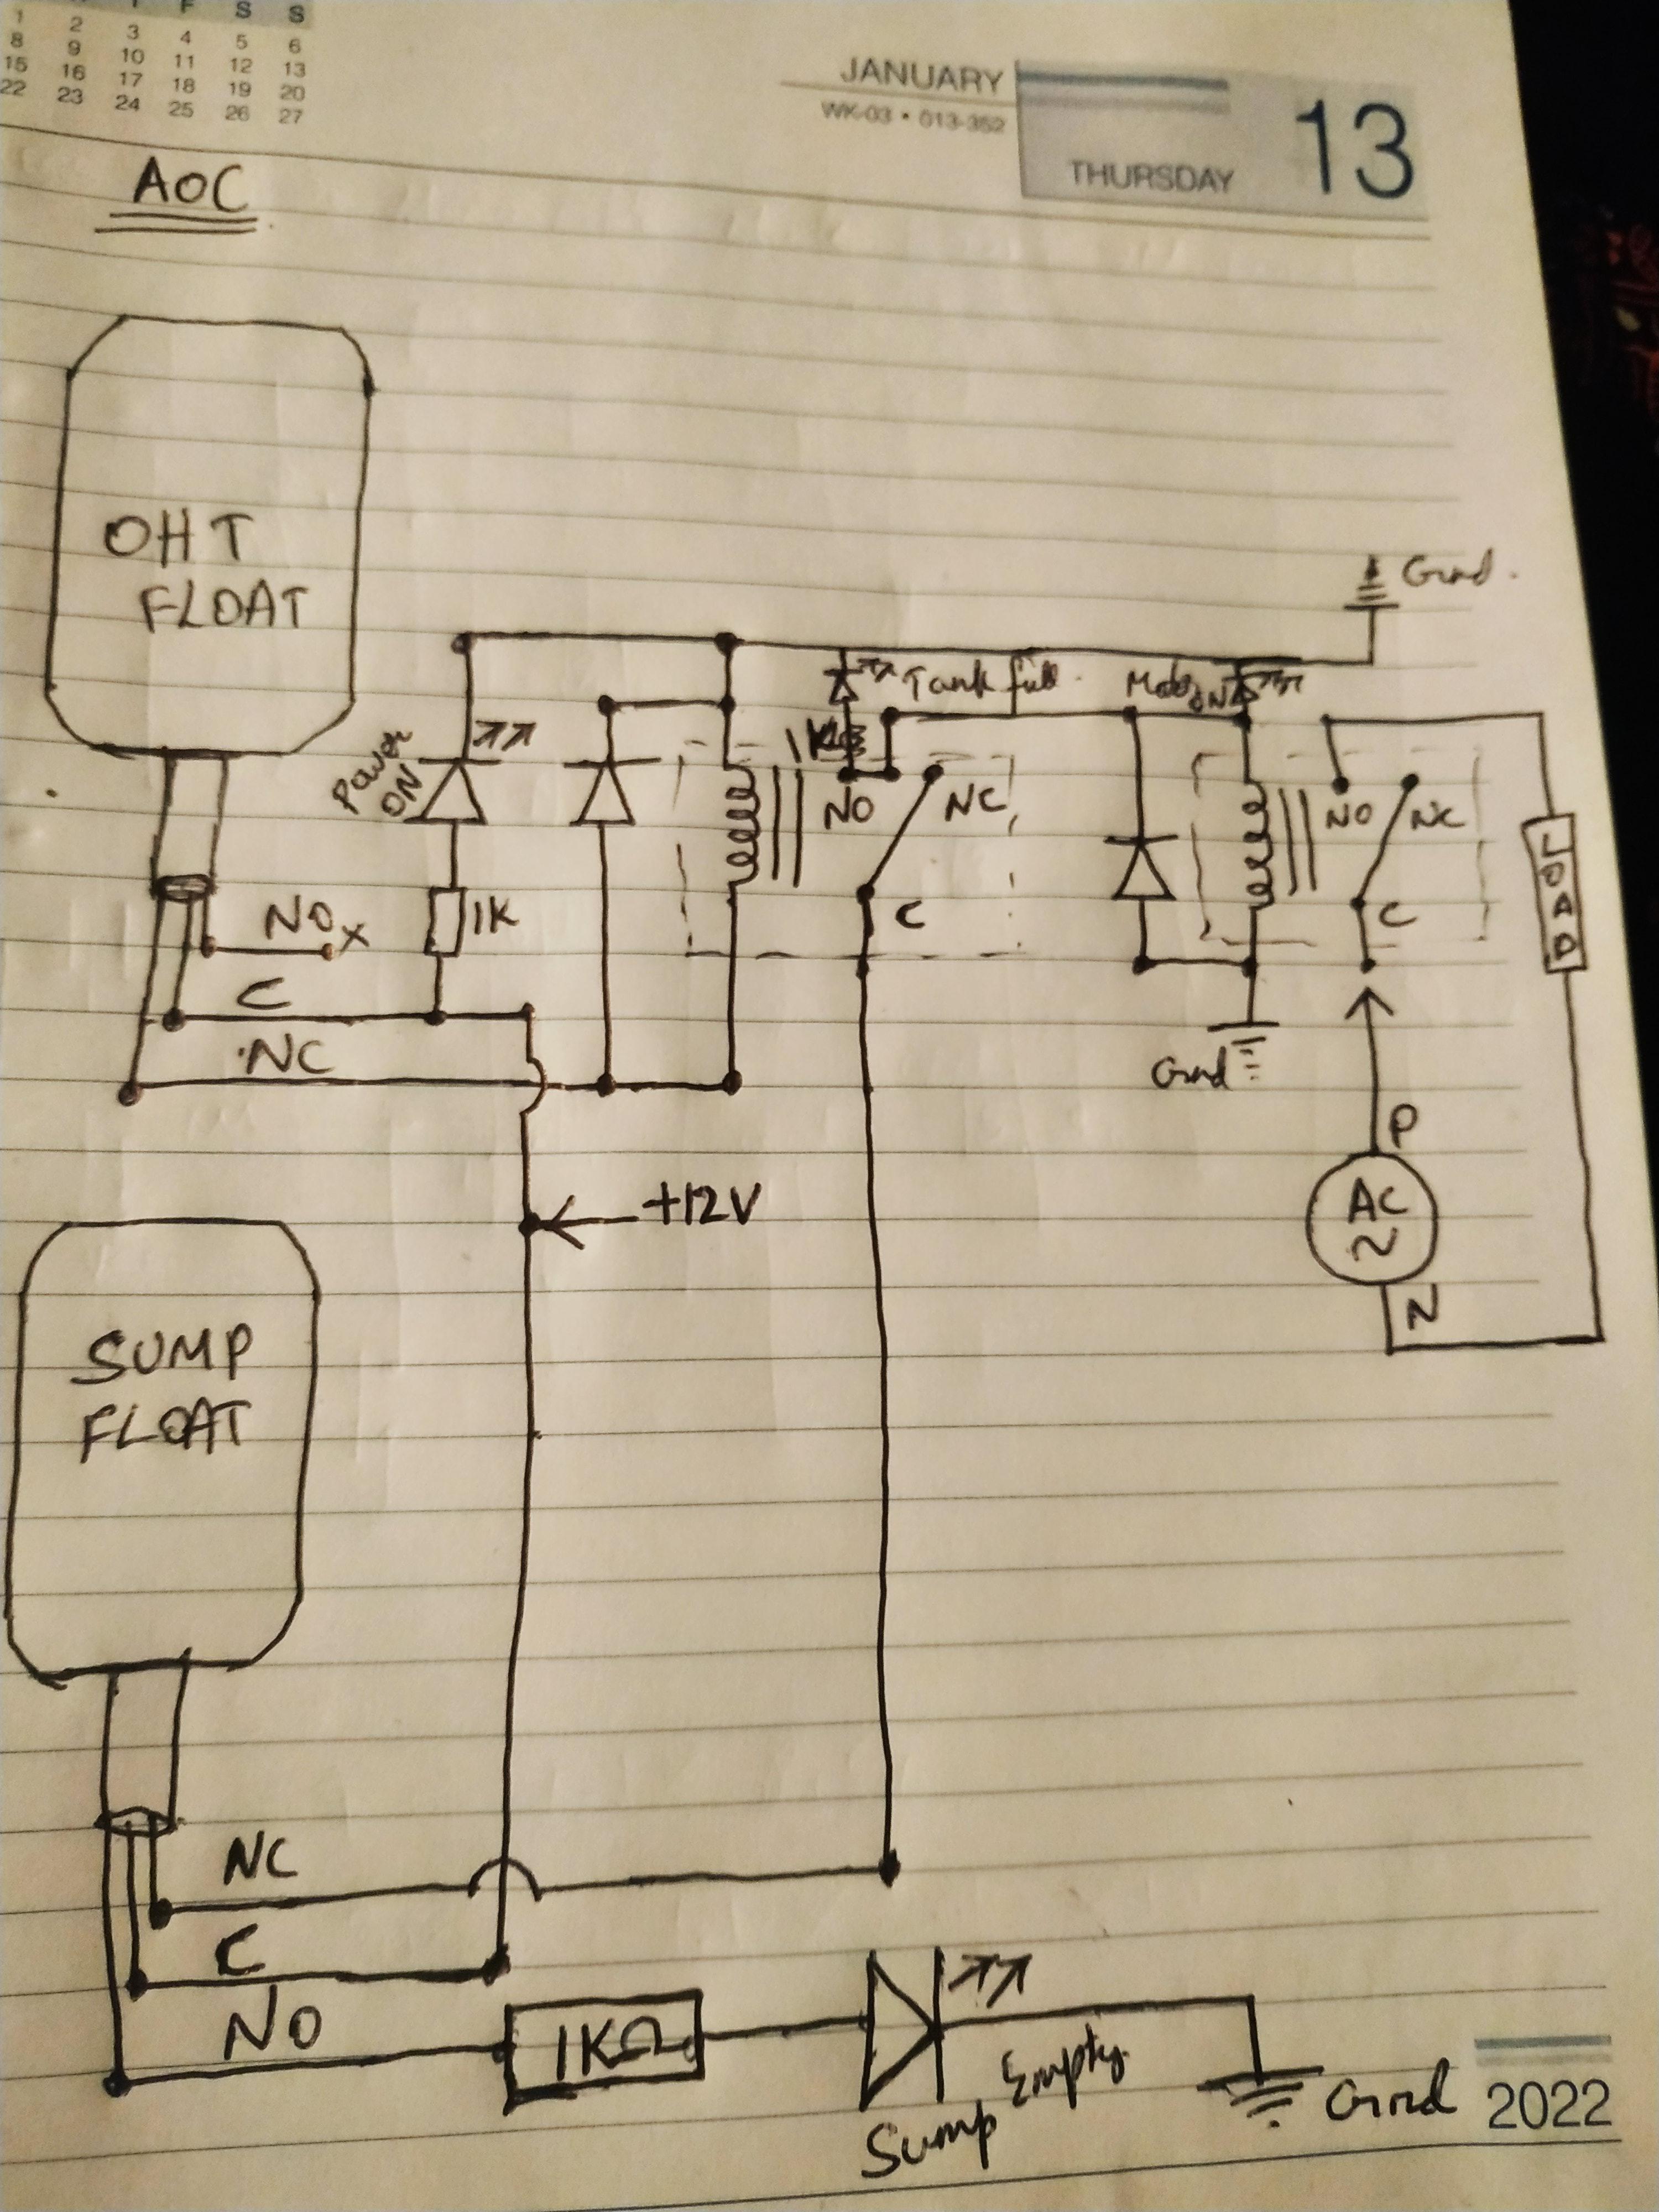 F S S
1 2 3 4 5 6
8 9 10 11 12 13
15 16 17 18 19 20
22 23 24 25 26 27
JANUARY
WK-03 • 013-352
THURSDAY
13
AOC
OHT
FLOAT
Grnd.
Tank full.
ON
Power
ON
1K
NO
NC
NO
NC
LOAD
NO x
1K
C
C
C
NC
Grnd
P
+12V
AC
~
N
SUMP
FLOAT
NC
C
NO
1KΩ
Sump Empty.
Grnd
2022